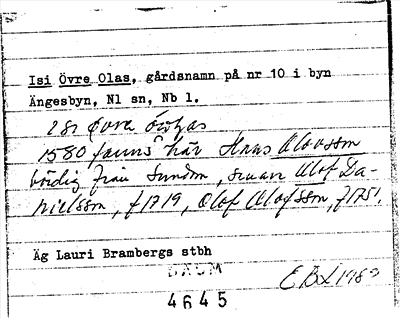 Isi Övre Olas, gårdsnamn på nr 10 i byn
Ängesbyn, Nl sn, Nb l.
isi övre
1580 fanns här Hans Olovsson
bördig från, senare Olof Da-
nielsson, f 1719, Olof Olofsson, f 1751.
Äg Lauri Brambergs stbh
DAUM
EBL 1989
4645